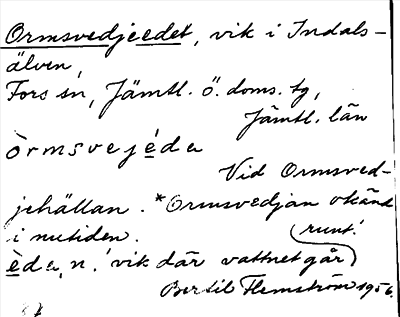 Ormsvedjeedet, vik i Indals-
älven,
Fors sn, Jämtl. ö. doms. tg,
Jämtl. län
òrmsvejéda
Vid Ormsved-
jehällan. *Ormsvedjan okänt
i nutiden.
èda, n. 'vik där vattnet går
runt'.
Bertil Flemström 1956.